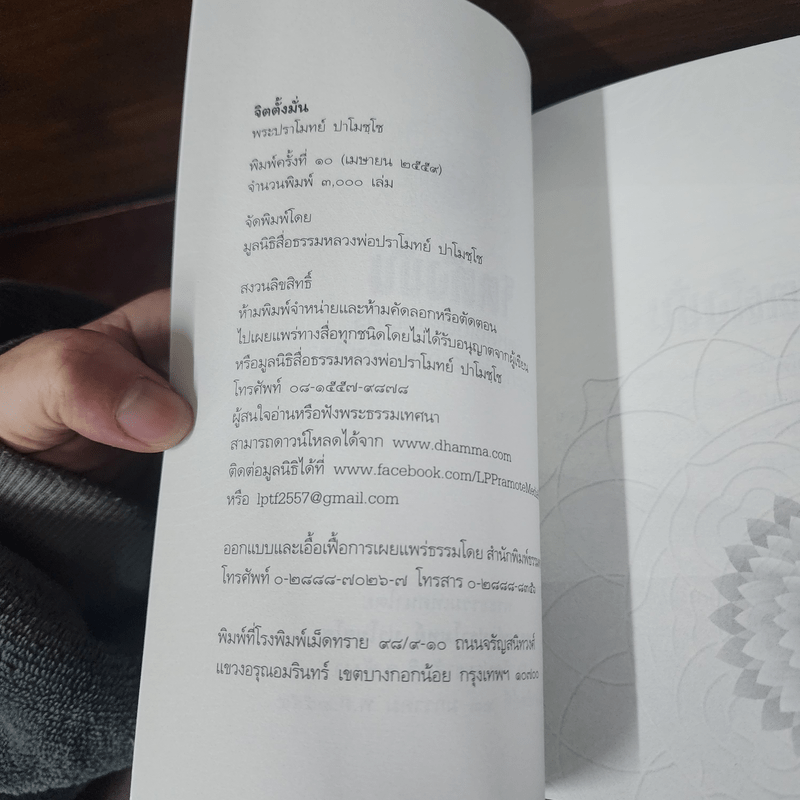 จิตตั้งมั่น
พระปราโมทย์ ปาโมชฺโช
พิมพ์ครั้งที่ ๑๐ (เมษายน ๒๕๕๙)
จำนวนพิมพ์ ๓,๐๐๐ เล่ม
จัดพิมพ์โดย
มูลนิธิสื่อธรรมหลวงพ่อปราโมทย์ ปาโมชฺโช
สงวนลิขสิทธิ์
ห้ามพิมพ์จำหน่ายและห้ามคัดลอกหรือตัดตอน
ไปเผยแพร่ทางสื่อทุกชนิดโดยไม่ได้รับอนุญาตจากผู้เขียน
หรือมูลนิธิสื่อธรรมหลวงพ่อปราโมทย์ ปาโมชฺโช
โทรศัพท์ ๐๘-๑๕๕๗-๙๘๗๘
ผู้สนใจอ่านหรือฟังพระธรรมเทศนา
สามารถดาวน์โหลดได้จาก www.dhamma.com
ติดต่อมูลนิธิได้ที่ www.facebook.com/LPPramoteMedia
หรือ lptf2557@gmail.com
ออกแบบและเอื้อเฟื้อการเผยแพร่ธรรมโดย สำนักพิมพ์ธรรม
โทรศัพท์ ๐-๒๘๘๘-๗๐๒๖-๗ โทรสาร ๐-๒๘๘๘-๘๓๕๖
พิมพ์ที่โรงพิมพ์เม็ดทราย ๙๘/๙-๑๐ ถนนจรัญสนิทวงศ์
แขวงอรุณอมรินทร์ เขตบางกอกน้อย กรุงเทพฯ ๑๐๗๐๐